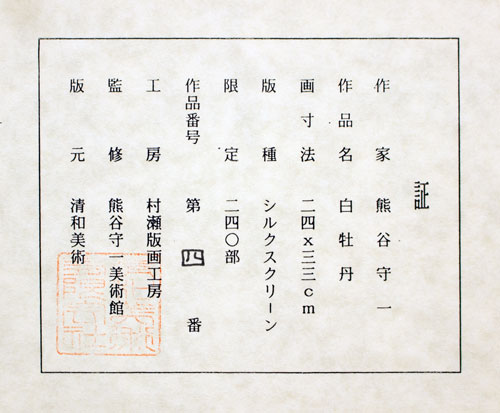 証
作家 熊谷守一
作品名 白牡丹
画寸法 二四x三三cm
版種 シルクスクリーン
限定 二四〇部
作品番号 第四番
工房 村瀬版画工房
監修 熊谷守一美術館
版元 清和美術